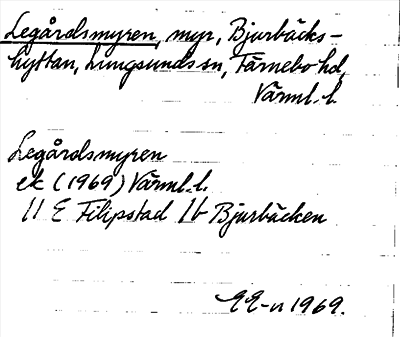 Legårdsmyren, myr, Bjurbäcks-
hyttan, Lungsunds sn, Färnebo hd,
Värml. l.
Legårdsmyren
ek (1969) Värml. l.
11 E Filipstad 1b Bjurbäcken
1969.